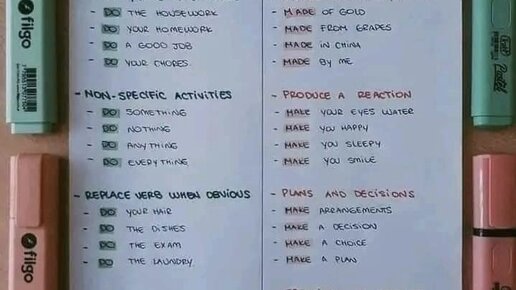 - DO THE HOUSEWORK
- DO YOUR HOMEWORK
- DO A GOOD JOB
- DO YOUR CHORES
- NON-SPECIFIC ACTIVITIES
- DO SOMETHING
- DO NOTHING
- DO ANYTHING
- DO EVERYTHING
- REPLACE VERB WHEN OBVIOUS
- DO YOUR HAIR
- DO THE DISHES
- DO THE EXAM
- DO THE LAUNDRY
- MADE OF GOLD
- MADE FROM GRAPES
- MADE IN CHINA
- MADE BY ME
- PRODUCE A REACTION
- MAKE YOUR EYES WATER
- MAKE YOU HAPPY
- MAKE YOU SLEEPY
- MAKE YOU SMILE
- PLANS AND DECISIONS
- MAKE ARRANGEMENTS
- MAKE A DECISION
- MAKE A CHOICE
- MAKE A PLAN
filgo
filgo
filgo
Pastel